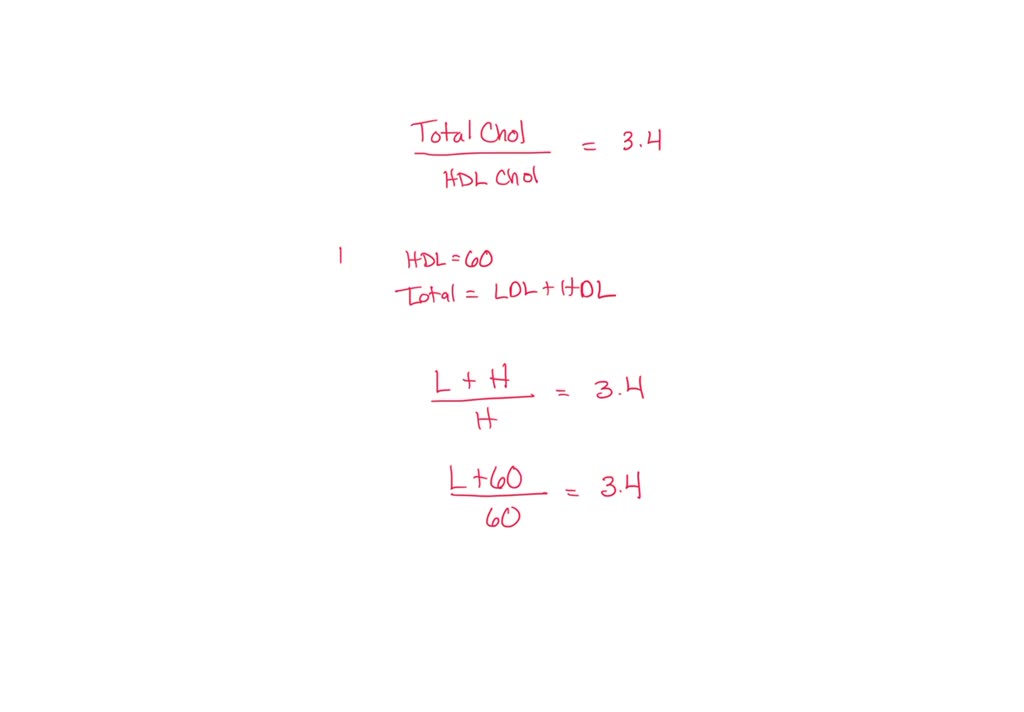 Total Chol
HDL Chol = 3.4
1 HDL = 60
Total = LDL + HDL
L + H
H = 3.4
L + 60
60 = 3.4